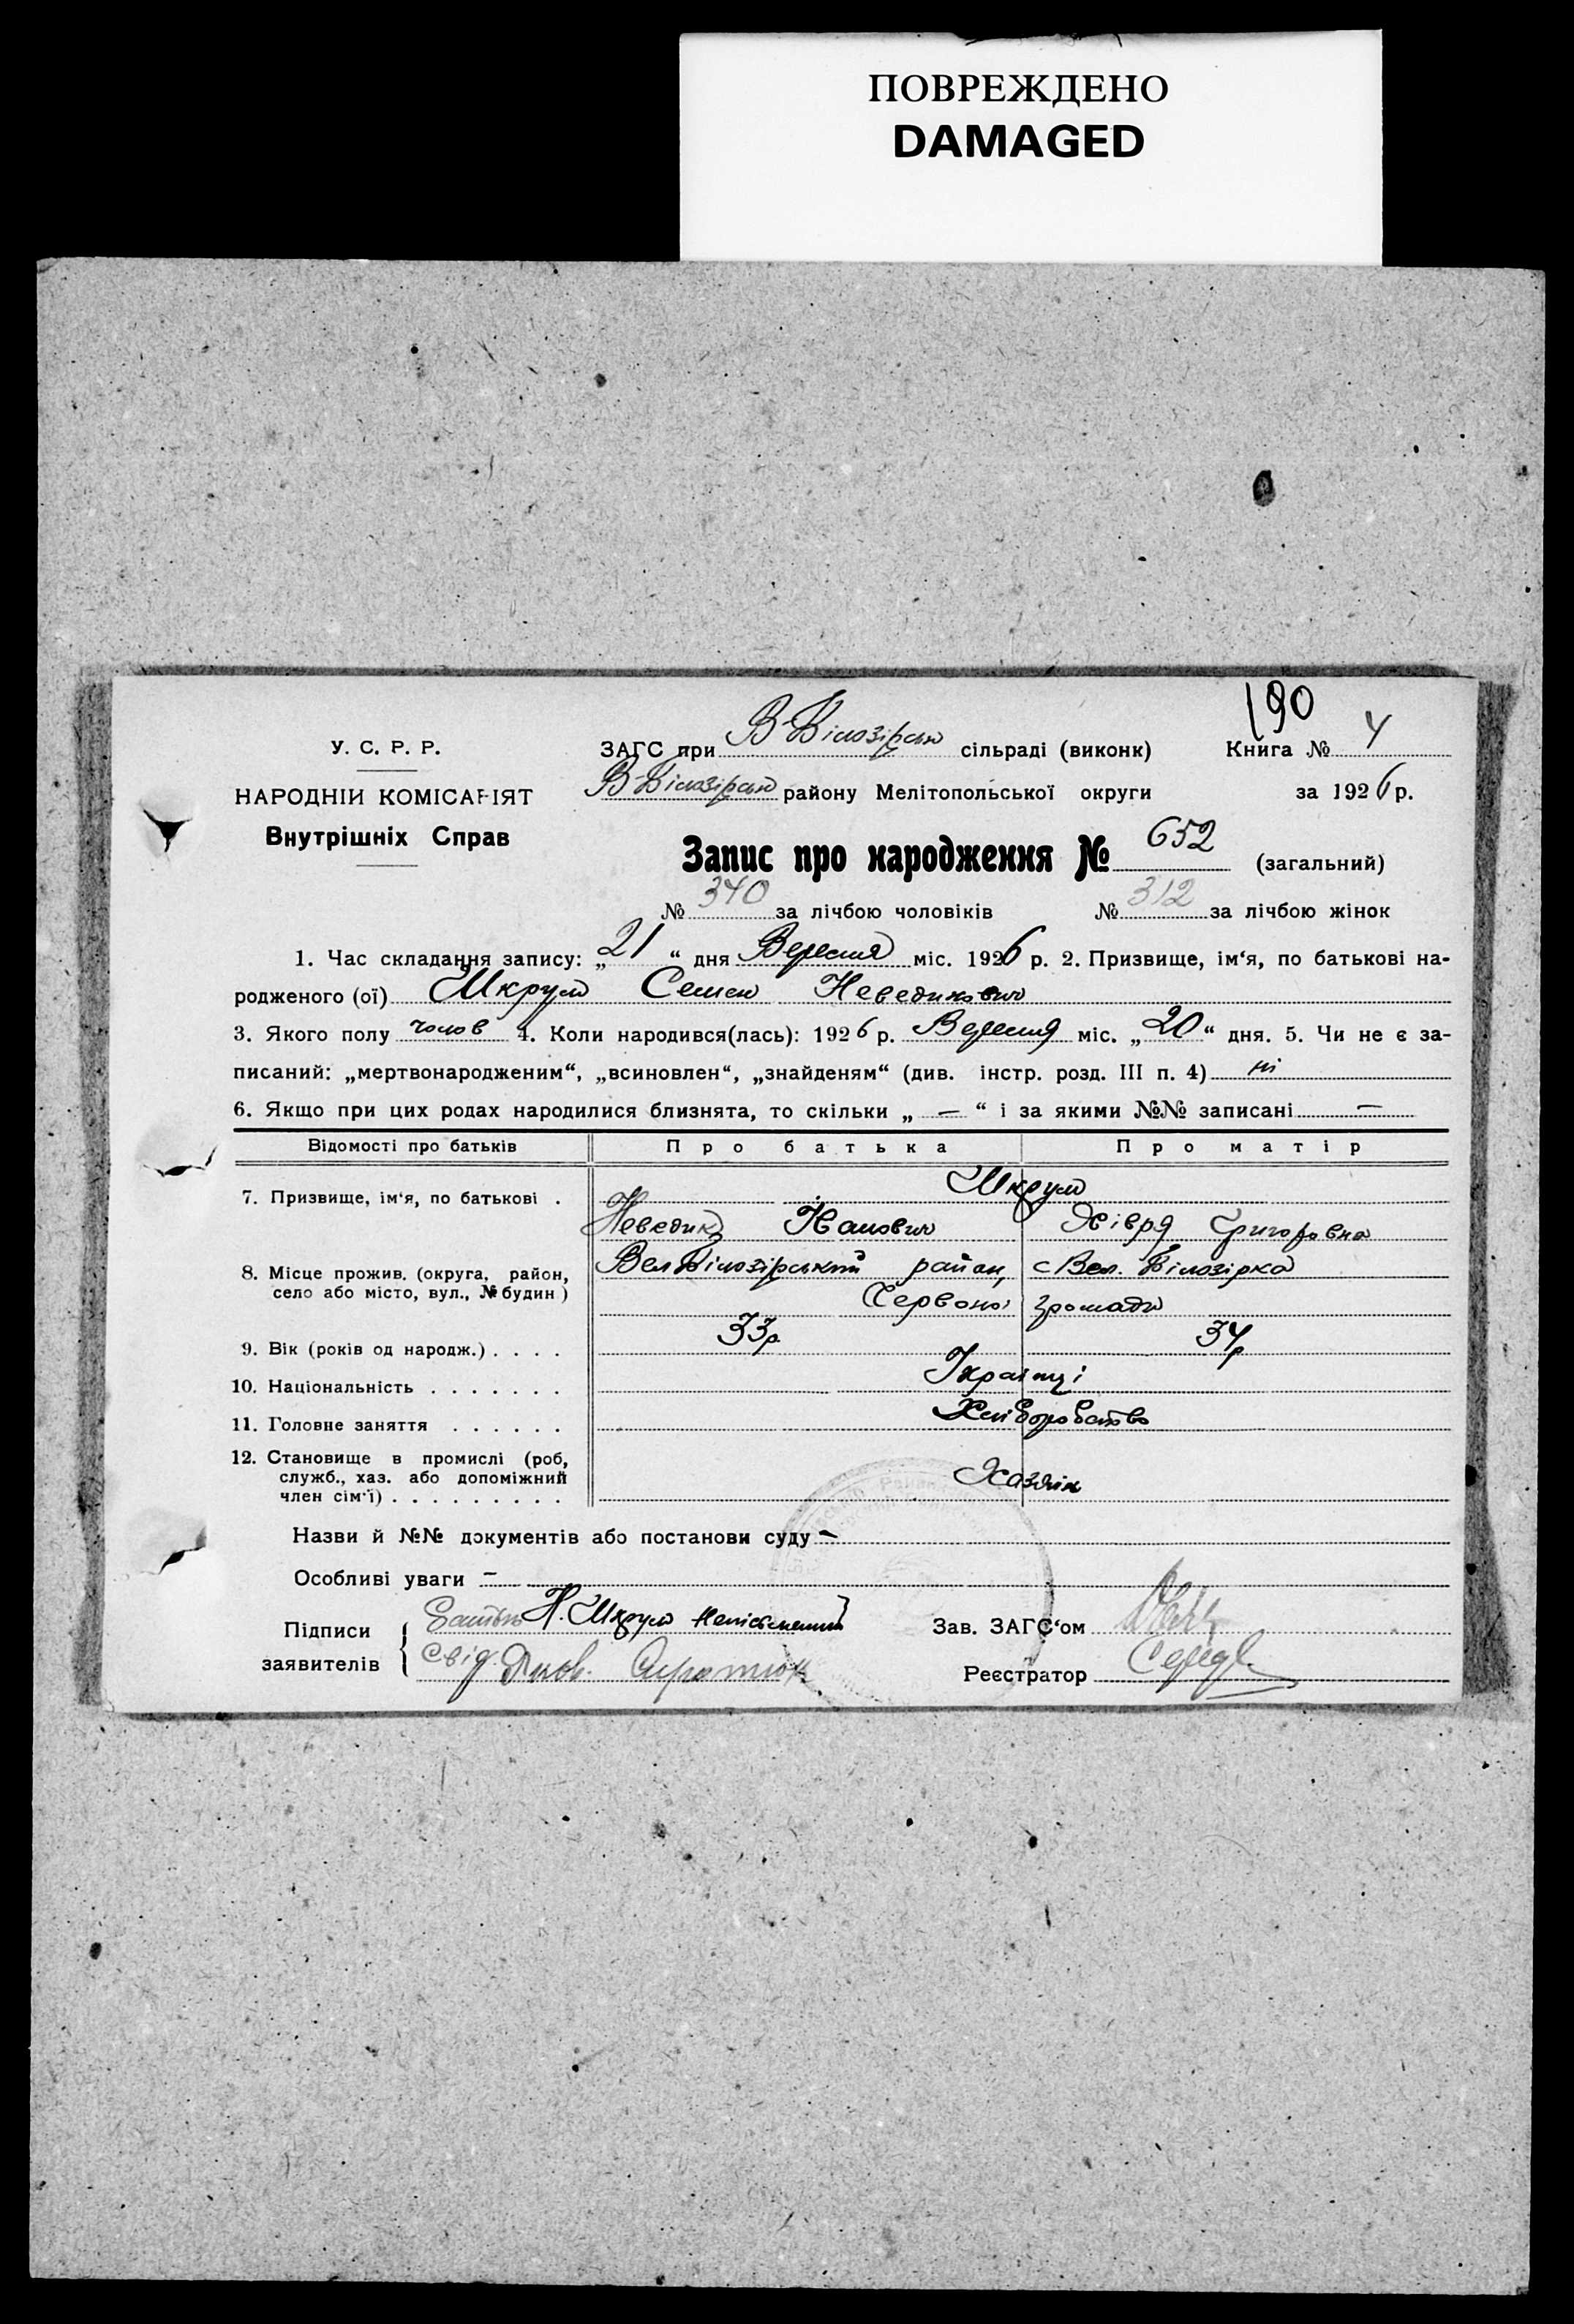 ПОВРЕЖДЕНО
DAMAGED
190
У. С. Р. Р.
НАРОДНІЙ КОМІСАРІЯТ
Внутрішніх Справ
ЗАГС при В-Білозірськ сільраді (виконк) Книга № 4
В-Білозірськ району Мелітопольської округи за 1926 р.
Запис про народження № 652 (загальний)
№ 340 за лічбою чоловіків № 312 за лічбою жінок
1. Час складання запису: „21“ дня Вересня міс. 1926 р. 2. Призвище, ім‘я, по батькові на-
родженого (ої) Шкрум Семен Неведикович
3. Якого полу чолов 4. Коли народився(лась): 1926 р. Вересня міс. „20“ дня. 5. Чи не є за-
писаний: „мертвонародженим“, „всиновлен“, „знайденям“ (див. інстр. розд. III п. 4) ні
6. Якщо при цих родах народилися близнята, то скільки „ — “ і за якими №№ записані —
Відомості про батьків Про батька Про матір
7. Призвище, ім‘я, по батькові . Шкрум
Неведикт Іванович Хівря Григоровна
8. Місце прожив. (округа, район, село або місто, вул., № будин) Вел Білозірський район, с Вел. Білозірка
Червоної громади
9. Вік (років од народж.) . . . . 33р 34р
10. Національність . . . . . . . Українці
11. Головне заняття . . . . . . Хліборобство
12. Становище в промислі (роб,
служб., хаз. або допоміжний
член сім‘ї) . . . . . . . . . Хазяїн
Назви й №№ документів або постанови суду —
Особливі уваги —
Підписи заявителів Батько Н. Шкрум неписьменний
Свід. Яков.
Зав. ЗАГС‘ом
Реєстратор